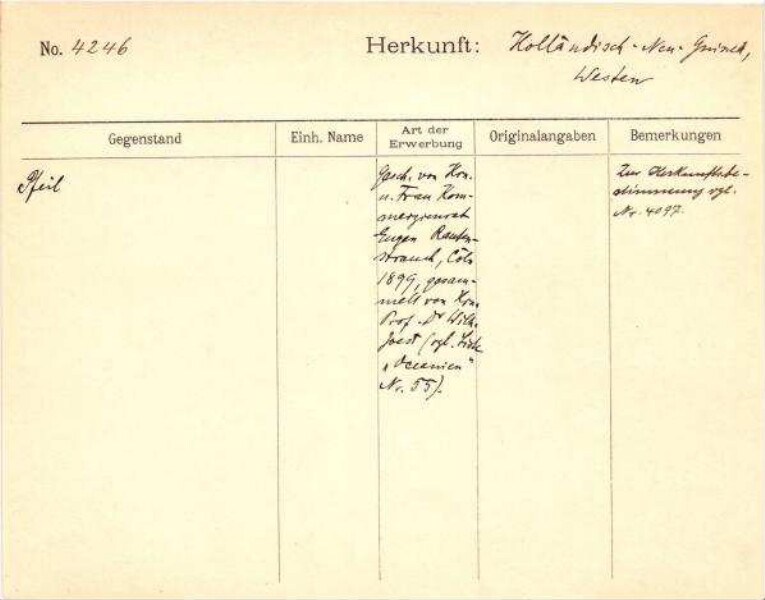 No. 4246 Herkunft: Holländisch-Neu-Guinea,
Westen
Gegenstand Einh. Name Art der Erwerbung Originalangaben Bemerkungen
Pfeil
Gesch. von Hrn.
u. Frau Kom-
merzienrat
Eugen Rauten-
strauch, Cöln
1899, gesam-
melt von Hrn.
Prof. Dr Wilh.
Joest (vgl. Liste
"Oceanien"
Nr. 55).
Zur Herkunftsbe-
stimmung vgl.
Nr. 4097.